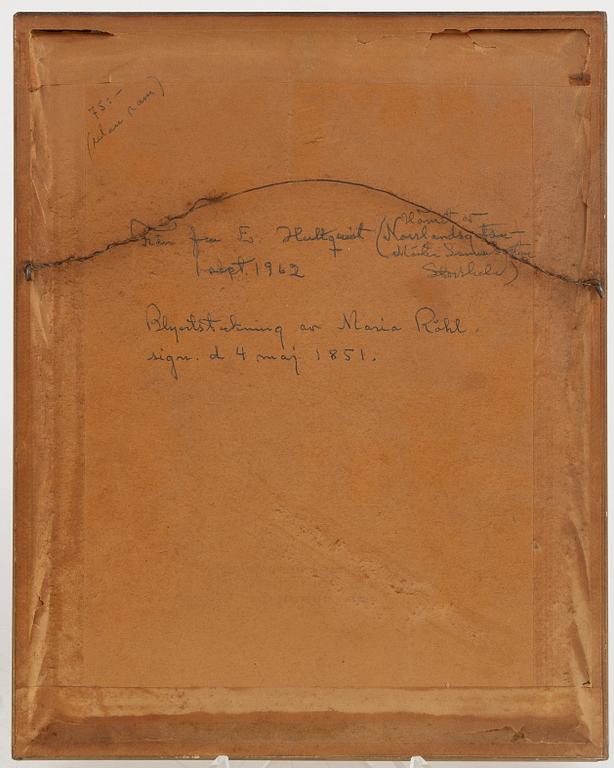 75:-
(utan ram)
Från fru E. Hultquist (Hörnet av
Norrlandsg
Mäster Samuelsg
1 sept. 1962
Blyertsteckning av Maria Röhl.
sign. d 4 maj 1851.